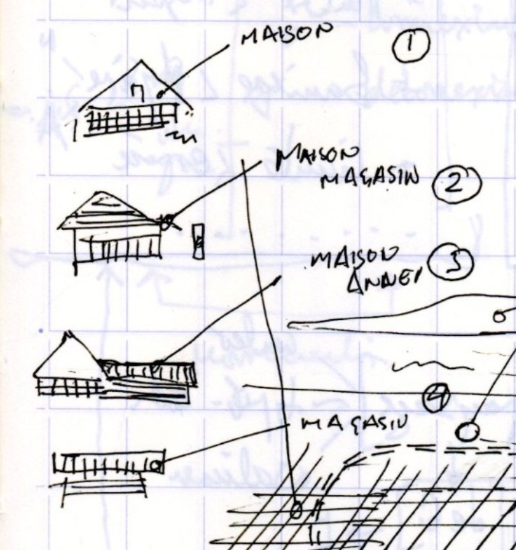 MAISON
1
MAISON
MAGASIN
2
MAISON
3
MAGASIN
4